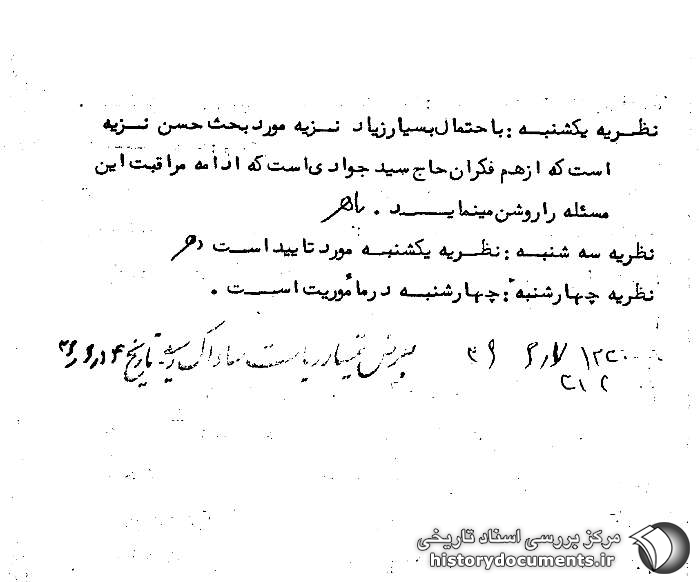 نظریه یکشنبه : با احتمال بسیار زیاد نزیه مورد بحث حسن نزیه
است که از هم فکران حاج سید جوادی است که ادامه مراقبت این
مسئله را روشن مینماید . ماهر
نظریه سه شنبه : نظریه یکشنبه مورد تایید است
نظریه چهارشنبه : چهارشنبه در مأموریت است .
ریاست ساواک تاریخ
مرکز بررسی اسناد تاریخی
historydocuments.ir